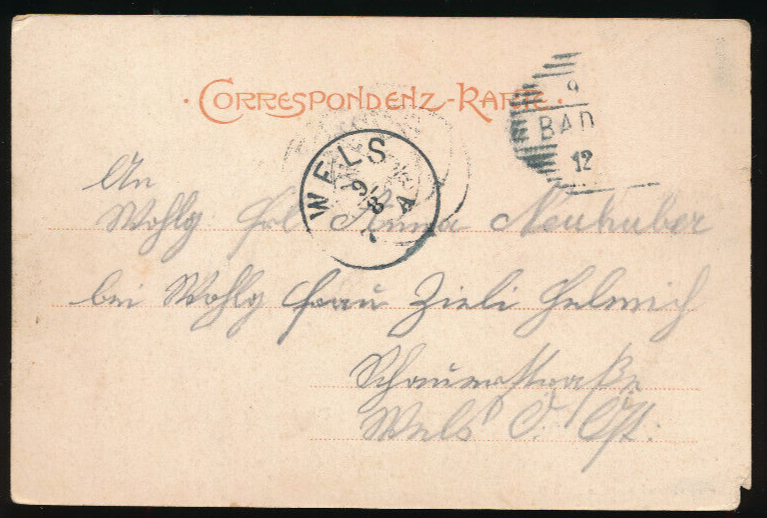 · CORRESPONDENZ-KARTE ·
WELS
9/8
A
7
9
BAD
12
An
Wohlg Frl Anna Neuhuber
bei Wohlg Frau Zieli Helmich
Schauerstraße
Wels O. Öst.